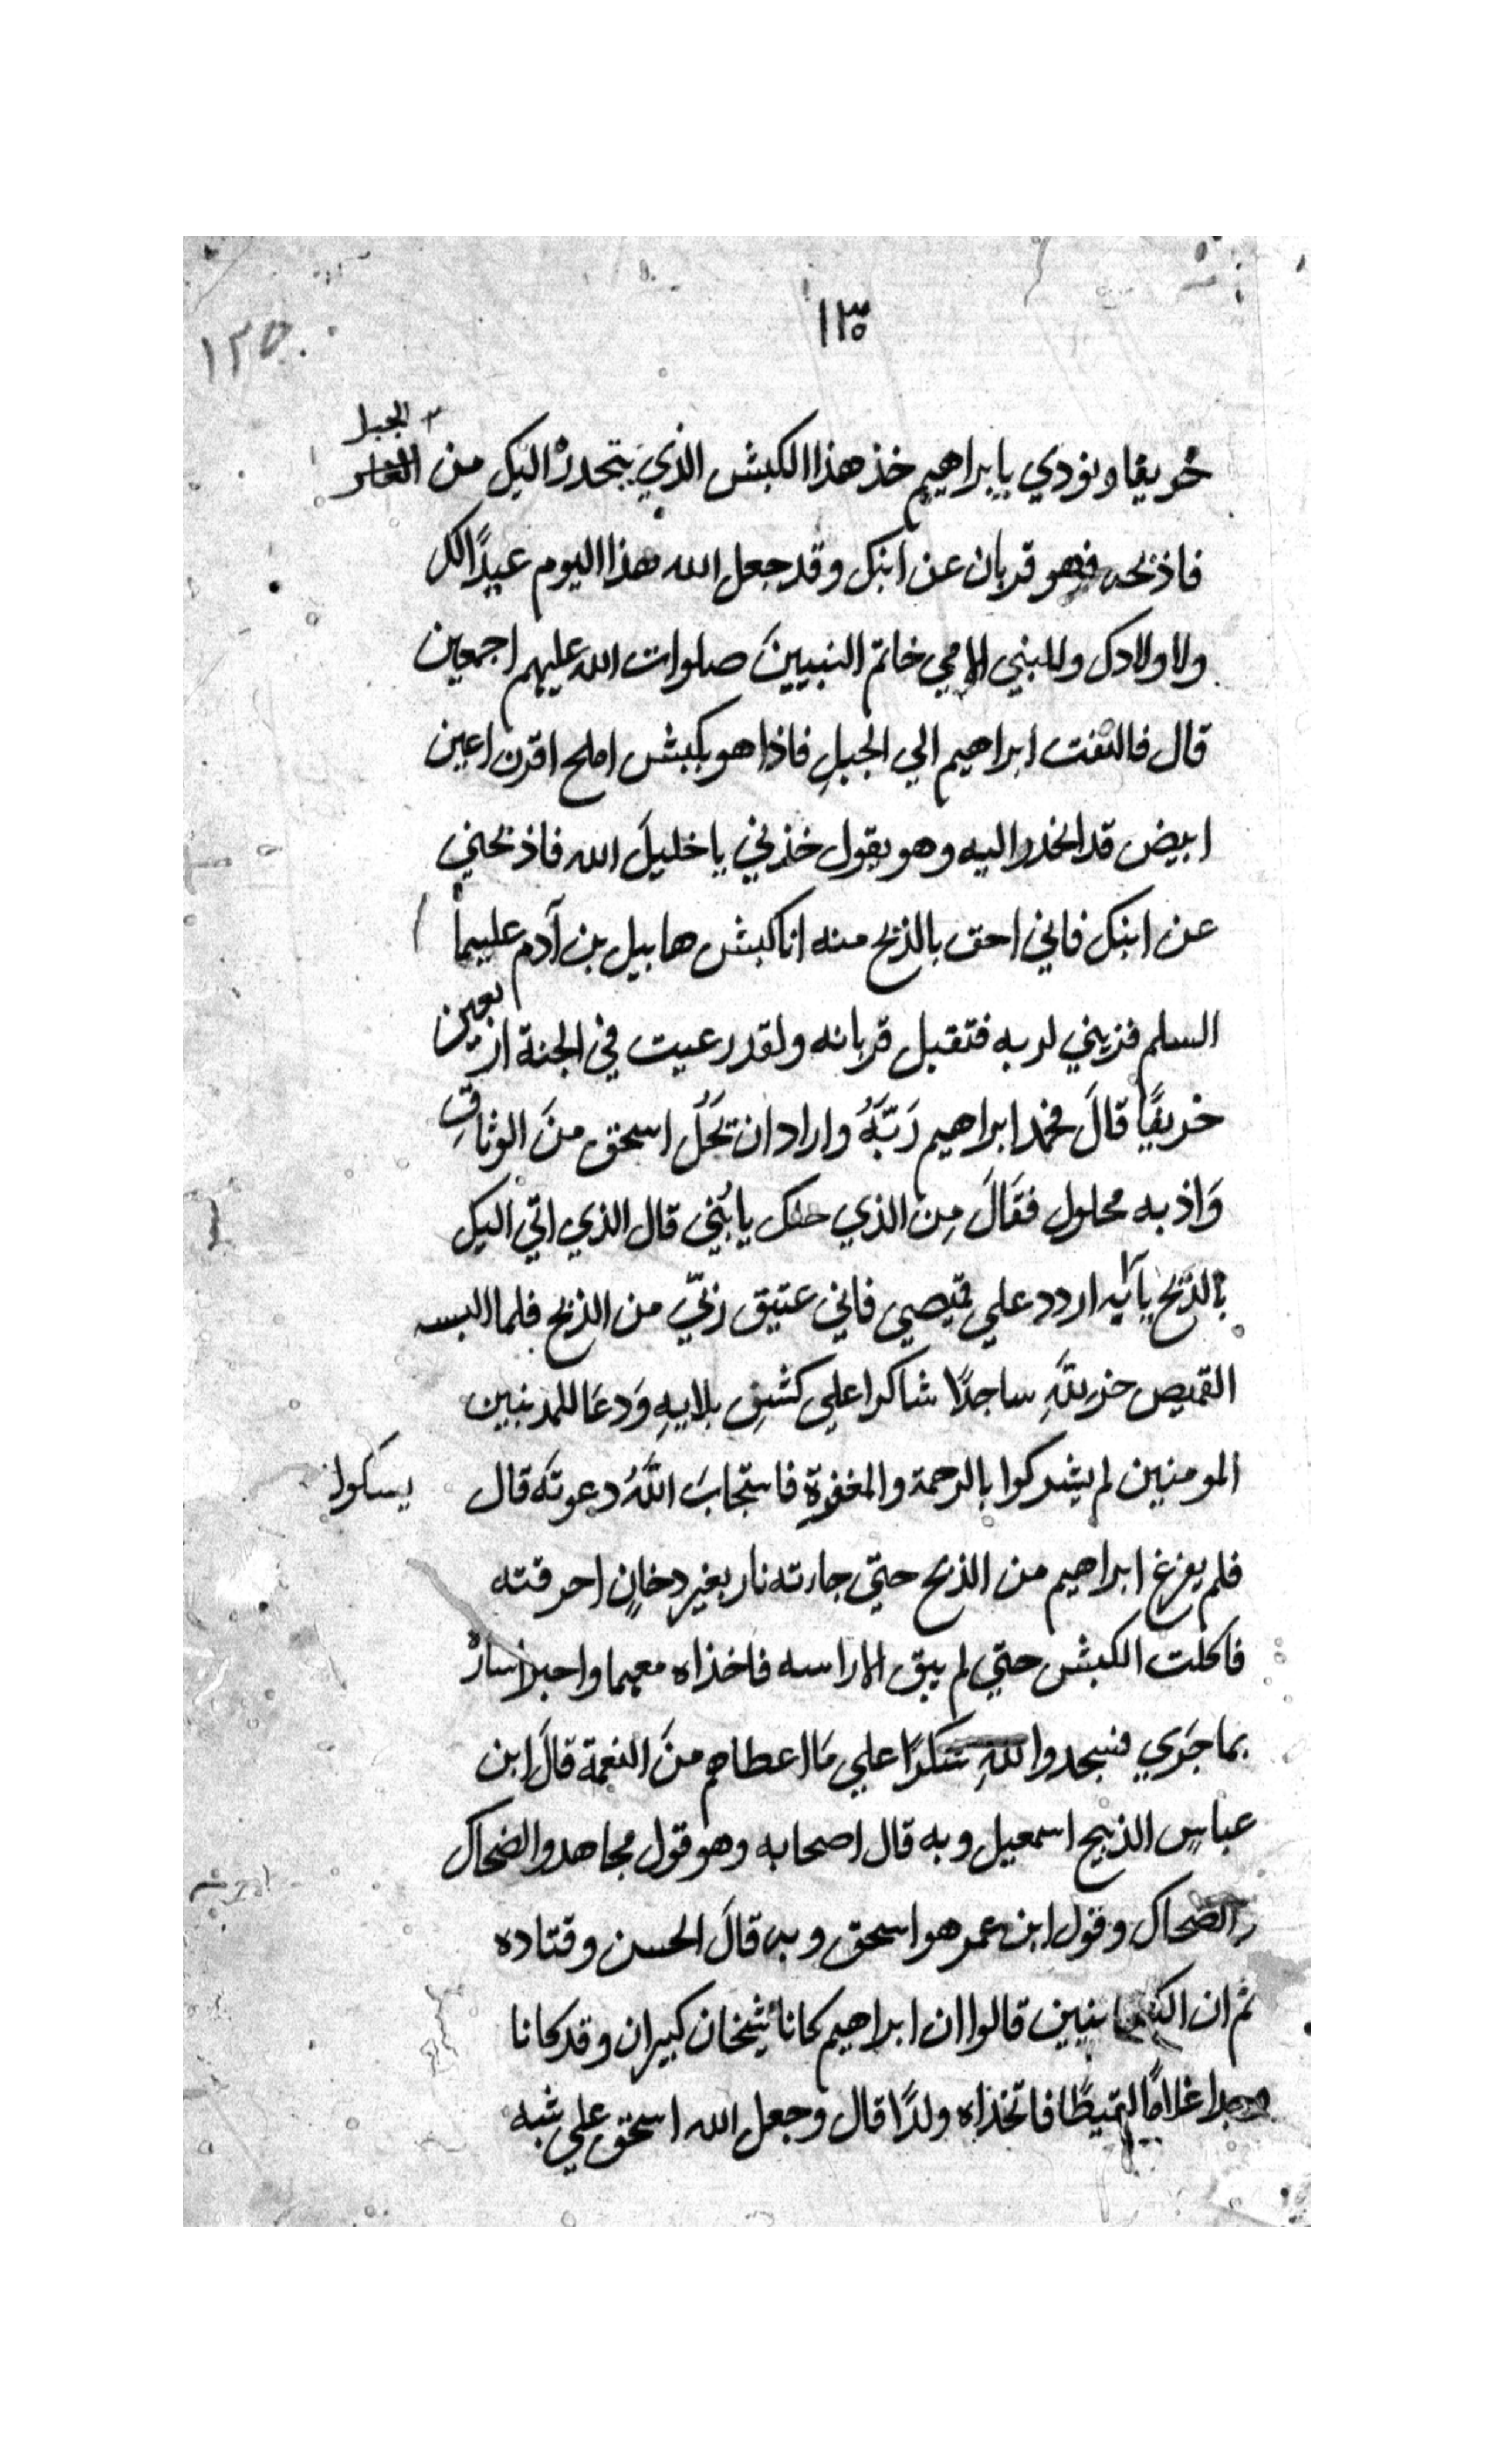 ١٣٥
١٣٥
الجبل
خريفا ونودي يابراهيم خذ هذا الكبش الذي يتحدر اليك من
فاذبحه فهو قربان عن ابنك وقد جعل الله هذا اليوم عيدًا لك
ولاولادك وللنبي الامي خاتم النبيينَ صلوات الله عليهم اجمعين
قال فالتفت ابراهيم الي الجبلِ فاذا هو بكبش املح اقرن اعين
ابيض قد انحدر اليه وهو يقول خذني يا خليلَ الله فاذبحني
عن ابنك فاني احق بالذبح منه انا كبش هابيل بن آدم عليهما
السلم قربني لربه فتقبل قربانه ولقد رعيت في الجنة اربعين
خريفًا قالَ فحمد ابراهيم رَبَّهُ واراد ان يَحُلَّ اسحق منَ الوثاقِ
وَاذ به محلول فقَالَ مِن الذي حلك يا بُنَي قال الذي اتي اليك
بالذبح يا ابه اردد علي قميصي فاني عتيق ربّي من الذبح فلما البسه
القميص خر للهِ ساجدًا شاكرا علي كشفِ بلايهِ وَدعَا للمذنبين
المومنين لم يشركوا بالرحمة والمغفرة فاستجابَ اللهُ دعوتَه قال
فلم يفرغ ابراهيم من الذبح حتي جاءته نار بغير دخانٍ احرقته
فاكلت الكبش حتي لم يبق الا راسه فاخذاه معهما واخبرا سارْ
بما جَري فسجدوا للهِ شكرًا علي مَا اعطاهم منَ النعمة قالَ ابن
عباسٍ الذبيح اسمعيل وبه قال اصحابه وهو قول مجاهد والضحاك
والضحاك وقول ابن عمر هو اسحق وبه قالَ الحسن وقتاده
ثم ان قالوا ان ابراهيم كانا شيخان كبيران وقد كانا
غلامًا لقيطًا فاتخذاه ولدًا قال وجعل الله اسحق علي شبه